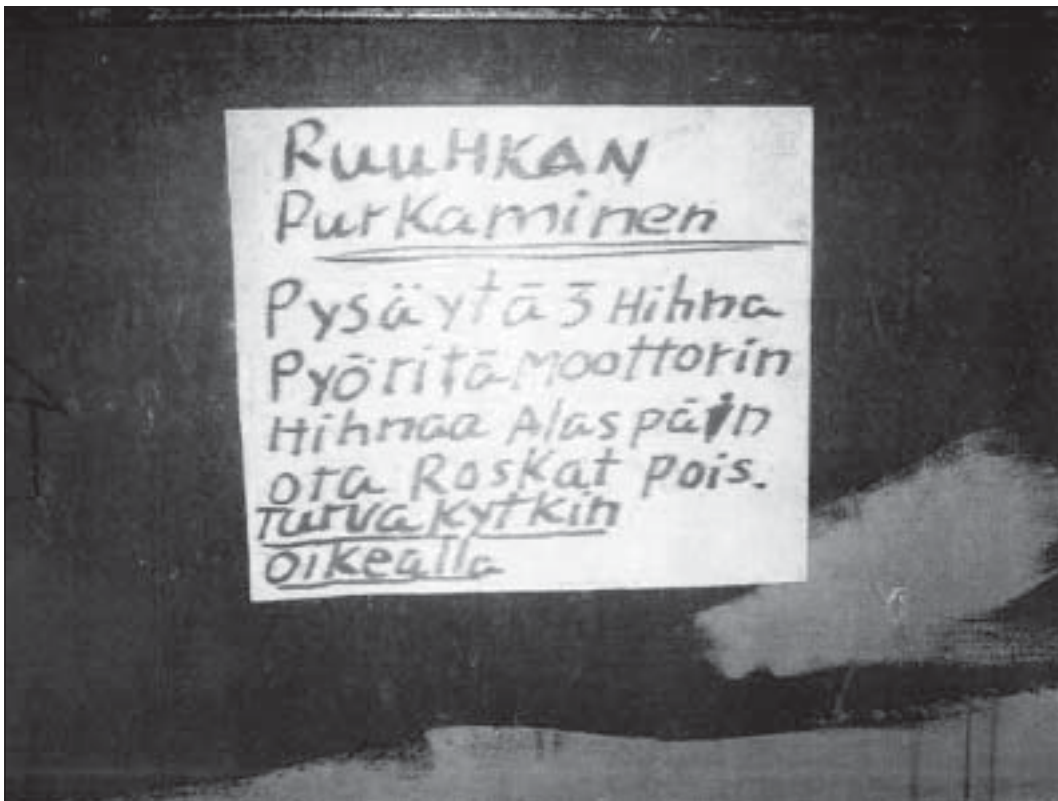 RuuHKAN
Purkaminen
Pysäytä 3 Hihna
Pyöritä moottorin
Hihnaa Alaspäin
ota Roskat pois.
Turvakytkin
oikealla